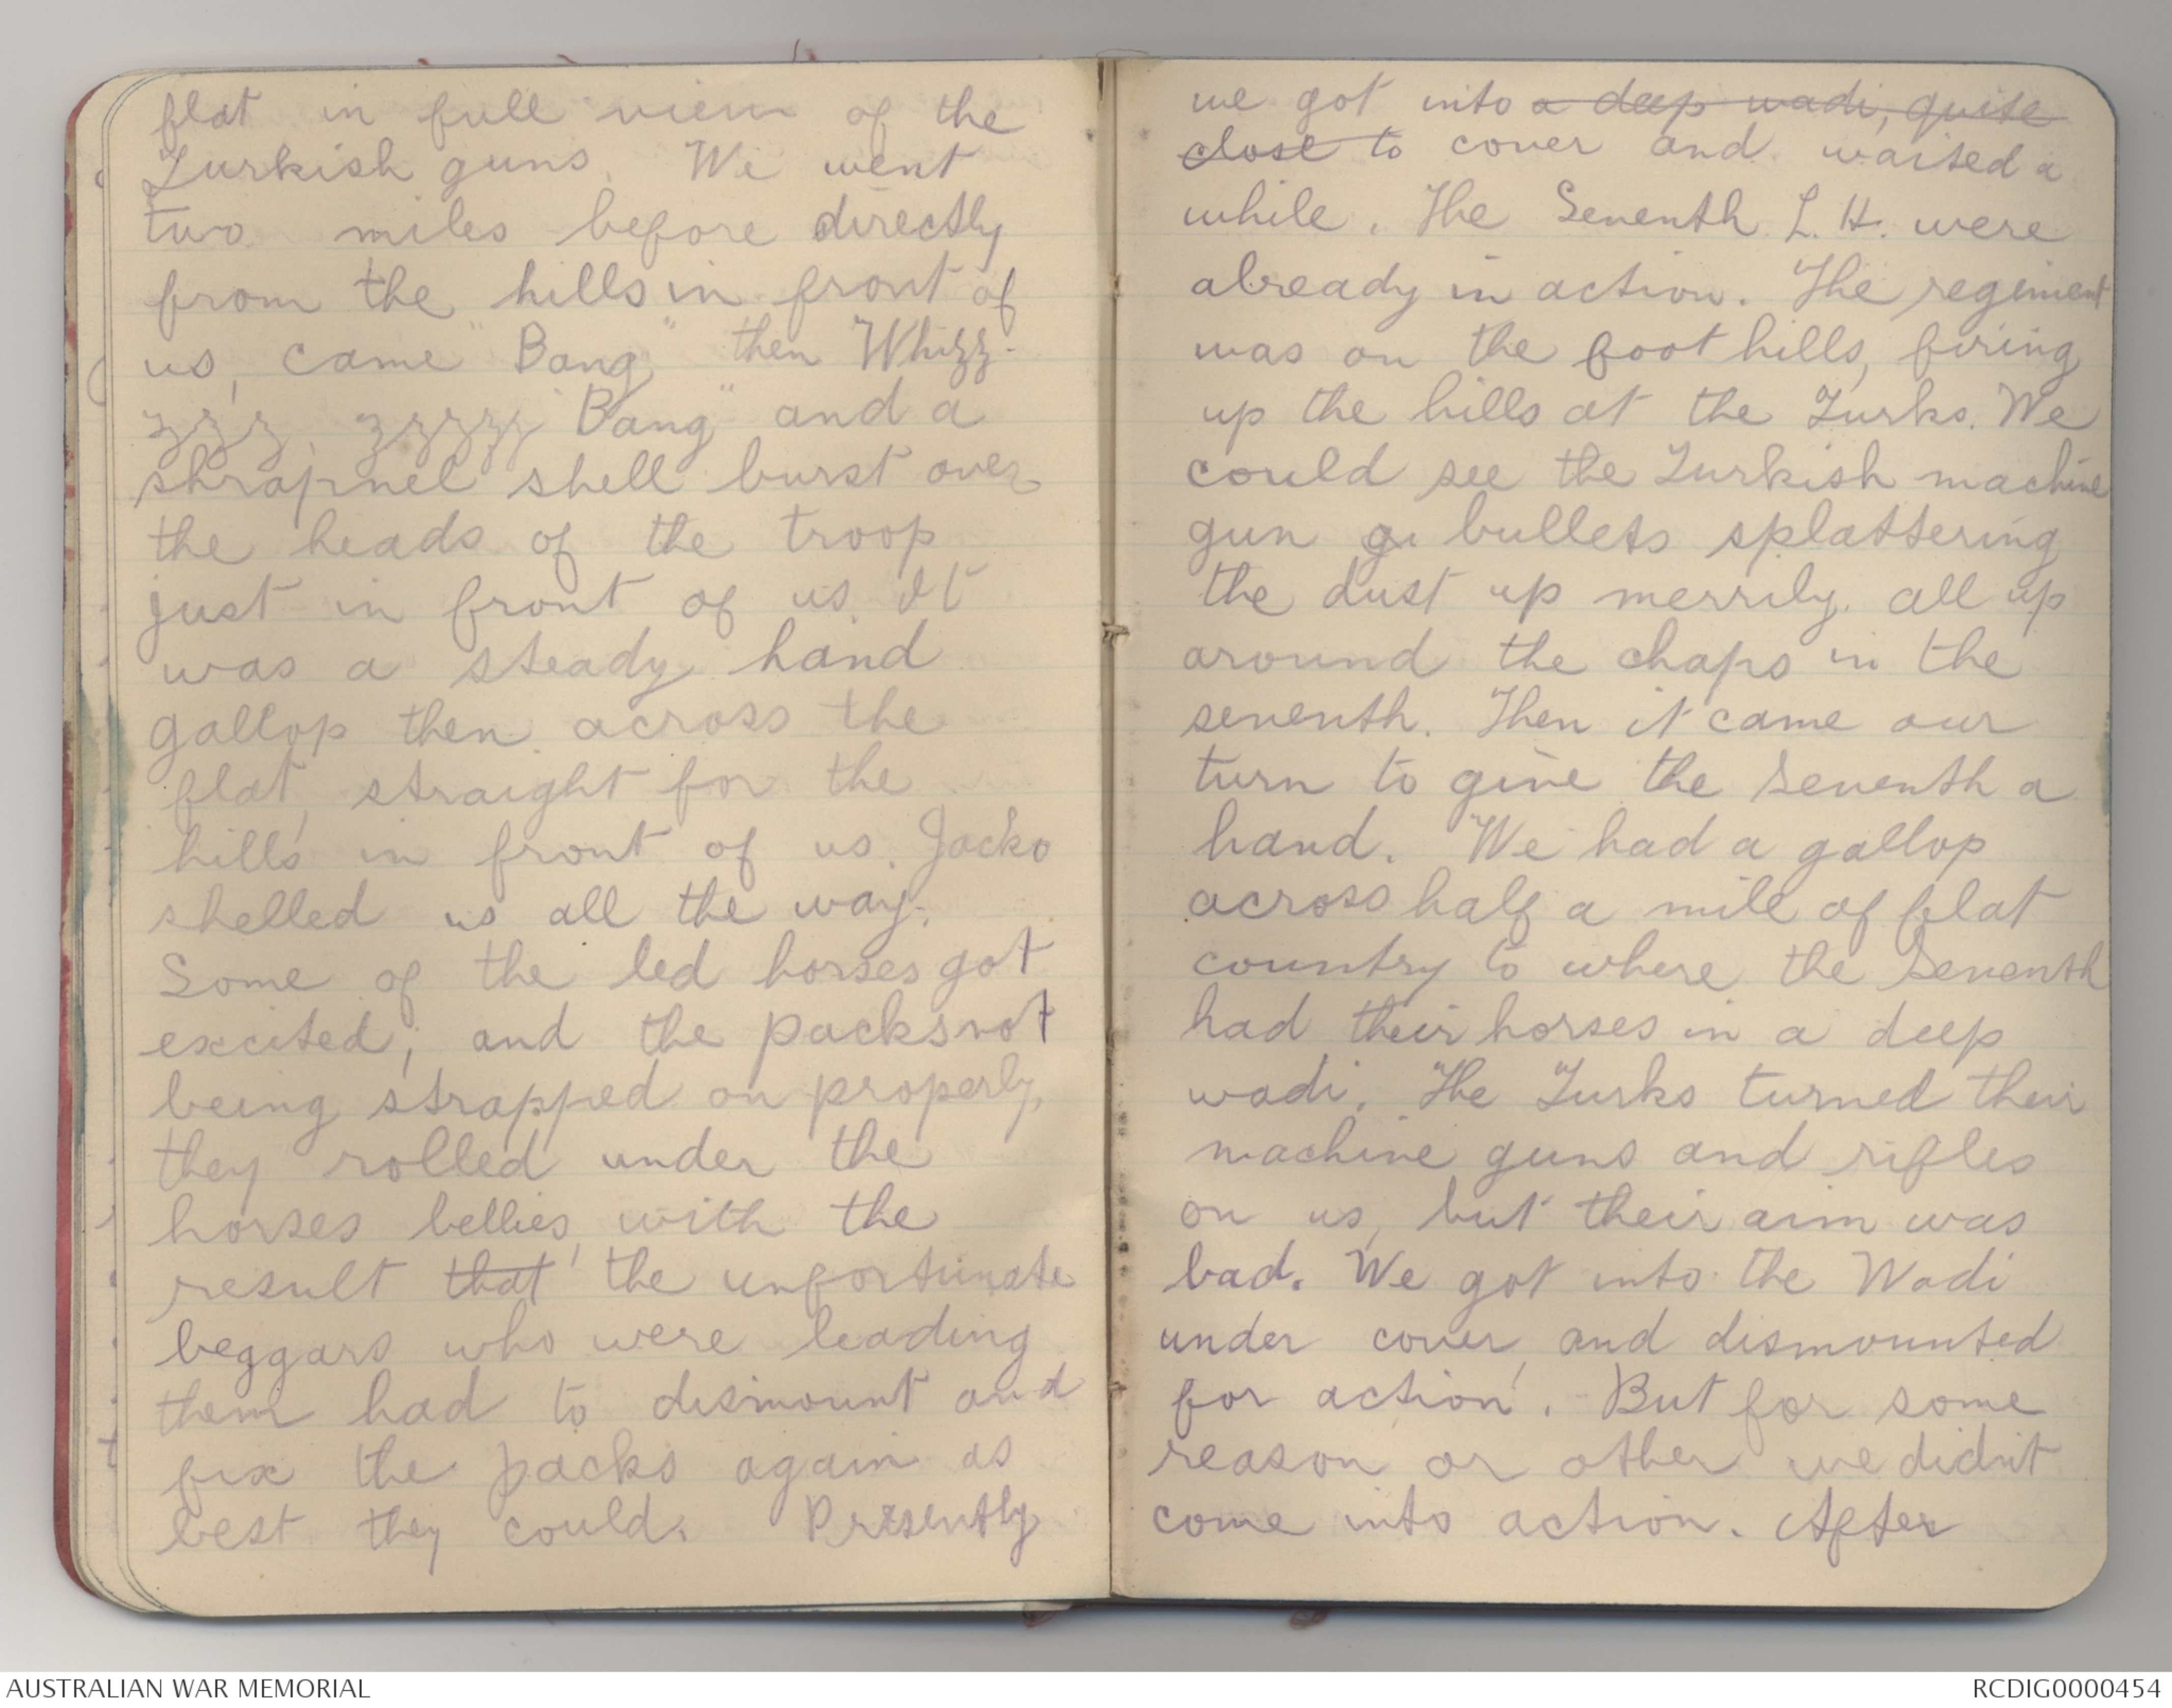 flat in full view of the
Turkish guns. We went
two miles before directly
from the hills in front of
us, came "Bang" then "Whizz-
zzz, zzzzz "Bang" and a
shrapnel shell burst over
the heads of the troop
just in front of us. It
was a steady hand
gallop then across the
flat, straight for the
hills in front of us. Jacko
shelled us all the way.
Some of the led horses got
excited, and the packs not
being strapped on properly,
they rolled under the
horses bellies, with the
result that the unfortunate
beggars who were leading
them had to dismount and
fix the packs again as
best they could. Presently
we got into a deep wadi, quite
close to cover and waited a
while. The Seventh L. H. were
already in action. The regiment
was on the foot hills, firing
up the hills at the Turks. We
could see the Turkish machine
gun gu bullets splattering
the dust up merrily. all up
around the chaps in the
seventh. Then it came our
turn to give the seventh a
hand. We had a gallop
across half a mile of flat
country to where the seventh
had their horses in a deep
wadi. The Turks turned their
machine guns and rifles
on us, but their aim was
bad. We got into the Wadi
under cover, and dismounted
for action. But for some
reason or other we didn't
come into action. After
AUSTRALIAN WAR MEMORIAL
RCDIG0000454